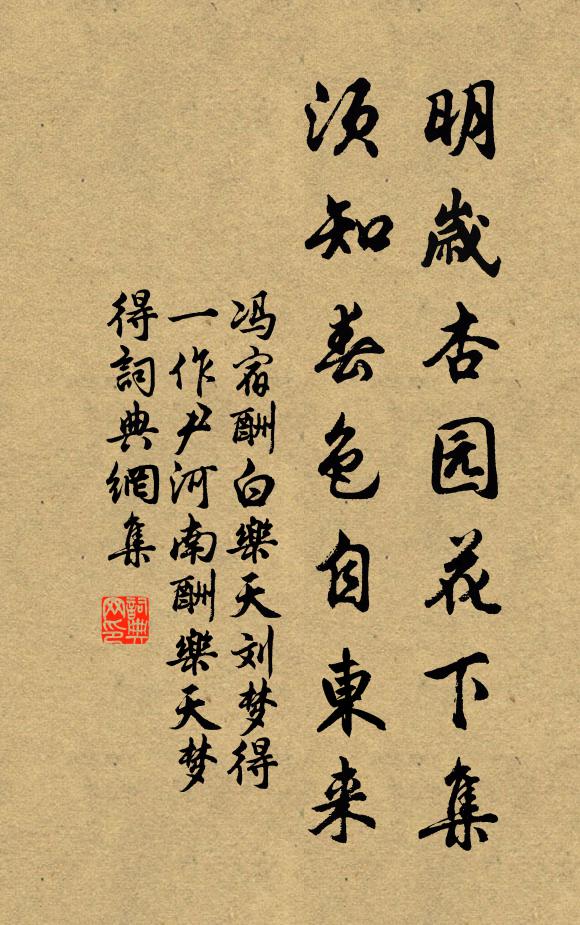 明歳杏园花下集
须知春色自東来
冯宿酬白樂天刘梦得
一作尹河南酬樂天梦
得詞典網集
詞典
网印